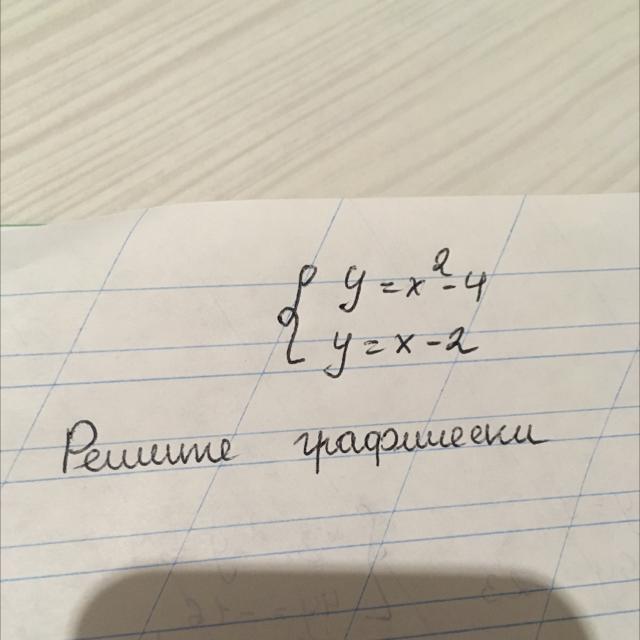 { y = x² - 4
y = x - 2
Решите графически